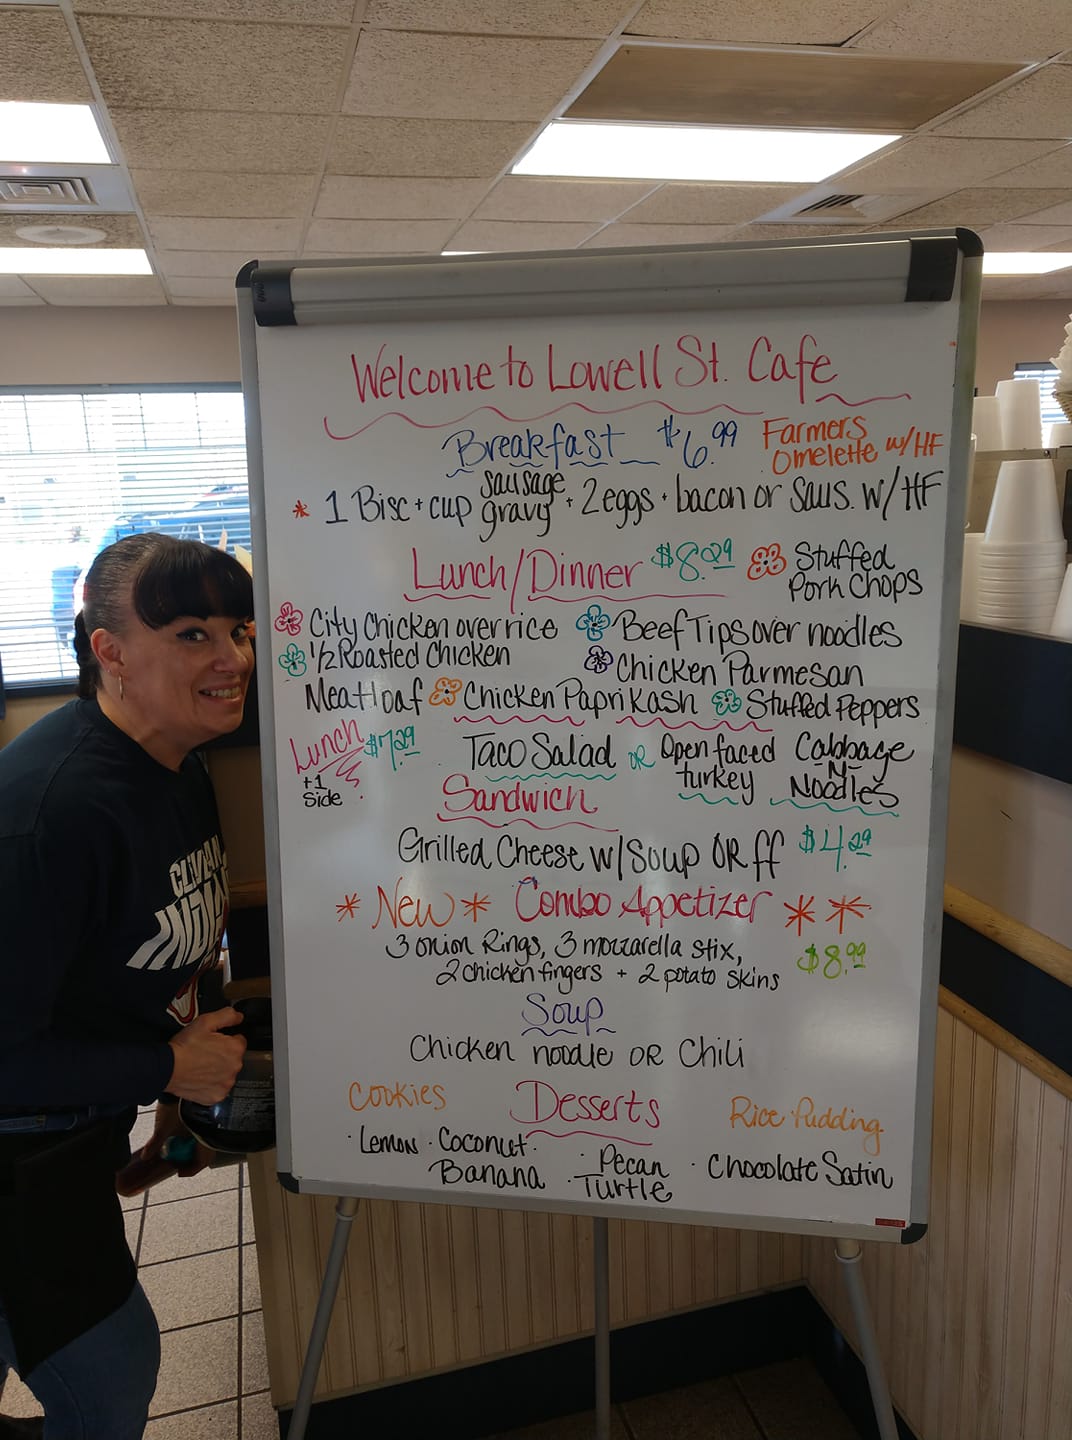 Welcome to Lowell St. Cafe
Breakfast $6.99 Farmers Omelette w/HF
* 1 Bisc + cup sausage gravy + 2 eggs + bacon or saus. w/HF
Lunch/Dinner $8.29 Stuffed Pork Chops
City Chicken over rice Beef Tips over noodles
1/2 Roasted Chicken Chicken Parmesan
Meatloaf Chicken Paprikash Stuffed Peppers
Lunch $7.29 Taco Salad OR Open faced turkey Cabbage -N- Noodles
+1 Side
Sandwich
Grilled Cheese w/Soup OR ff $4.29
* New * Combo Appetizer * *
3 onion Rings, 3 mozzarella stix,
2 chicken fingers + 2 potato skins $8.99
Soup
Chicken noodle OR Chili
Cookies Desserts Rice Pudding
· Lemon · Coconut · Pecan · Chocolate Satin
Banana · Turtle
INDIANS